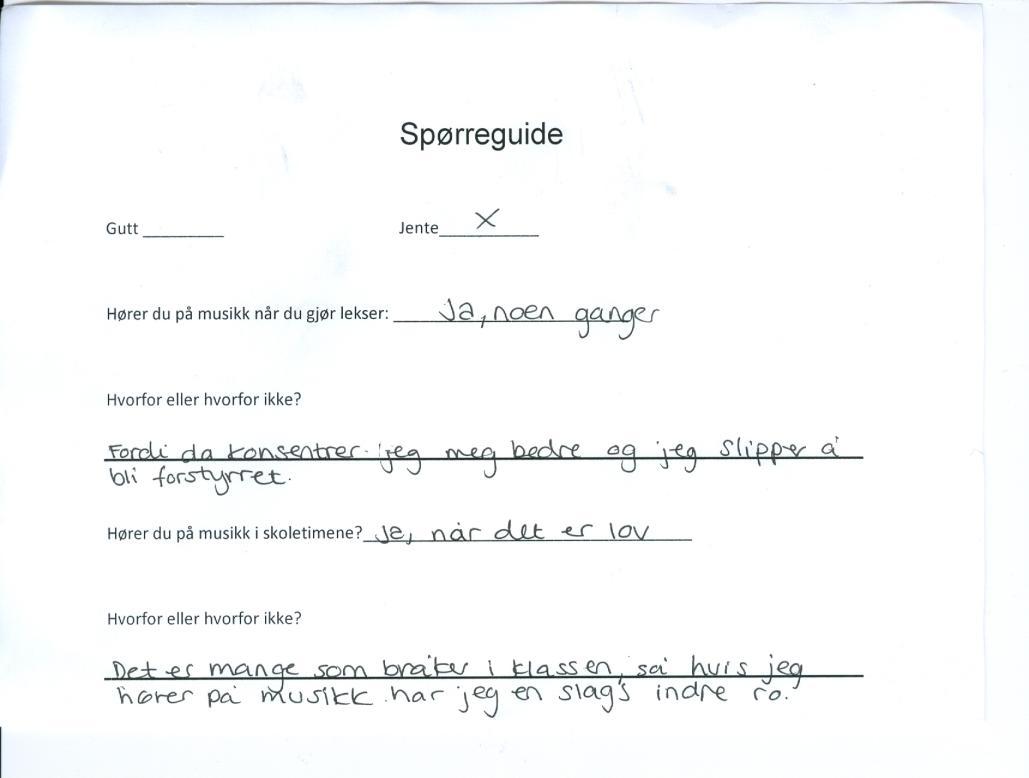 Spørreguide
Gutt __________ Jente X
Hører du på musikk når du gjør lekser: Ja, noen ganger
Hvorfor eller hvorfor ikke?
Fordi da konsentrer jeg meg bedre og jeg slipper å
bli forstyrret.
Hører du på musikk i skoletimene? Ja, når det er lov
Hvorfor eller hvorfor ikke?
Det er mange som bråker i klassen, så hvis jeg
hører på musikk har jeg en slags indre ro.